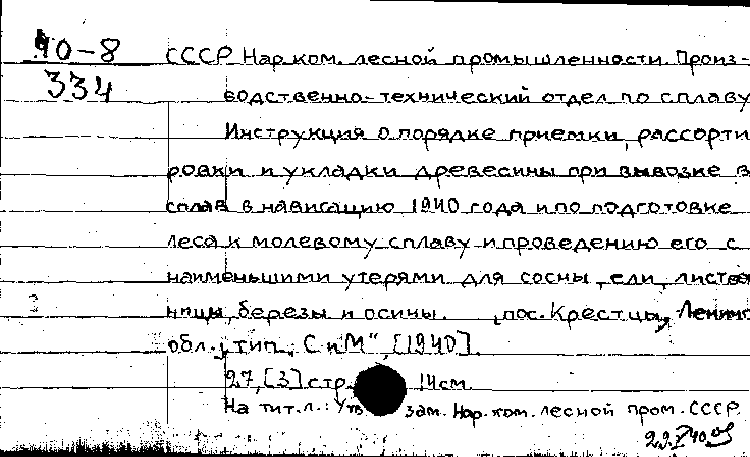 40-8
334
СССР. Нар.ком. лесной промышленности. Произ-
водственно-технический отдел по сплаву
Инструкция о порядке приемки, рассорти
ровки и укладки древесины при вывозке в
сплав в навигацию 1940 года и по подготовке
леса к молевому сплаву и проведению его с
наименьшими утерями для сосны, ели, листвен
ницы, березы и осины. пос. Крестцы, Ленинг
обл., тип. "С и М", [1940].
27, [3] стр. 14 см.
На тит. л.: Утв. зам. Нар. ком. лесной пром. СССР.